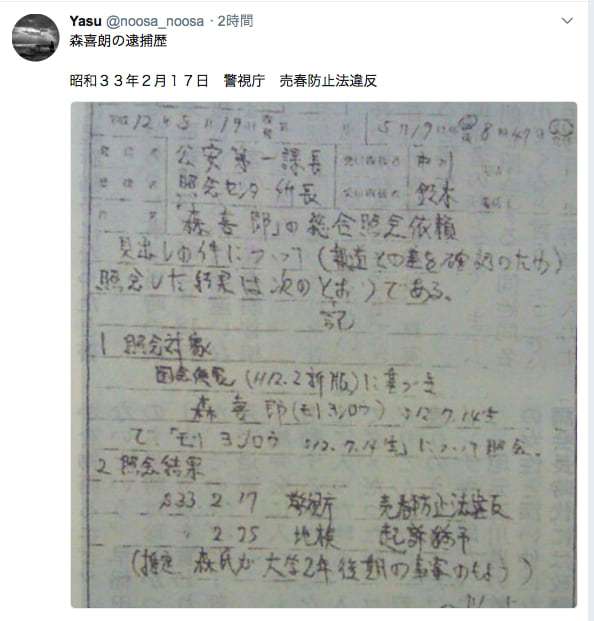 Yasu @noosa_noosa・2時間
森喜朗の逮捕歴
昭和33年2月17日　警視庁　売春防止法違反
12 5 19
5 19 8 47
公安第一課長
照会センター所長 鈴木
「森喜郎」の総合照会依頼
見出しの件について(報道との差を確認のため)
照会した結果は次のとおりである。
記
1 照会対象
国会便覧(H12.2新版)に基づき
森喜郎(モリヨシロウ) S12.7.14生
て「モリヨシロウ S12.7.14生」について照会。
2 照会結果
S33.2.17 警視庁 売春防止法違反
〃 2.25 地検 起訴猶予
(推定 森氏が大学2年後期の事案のもよう)